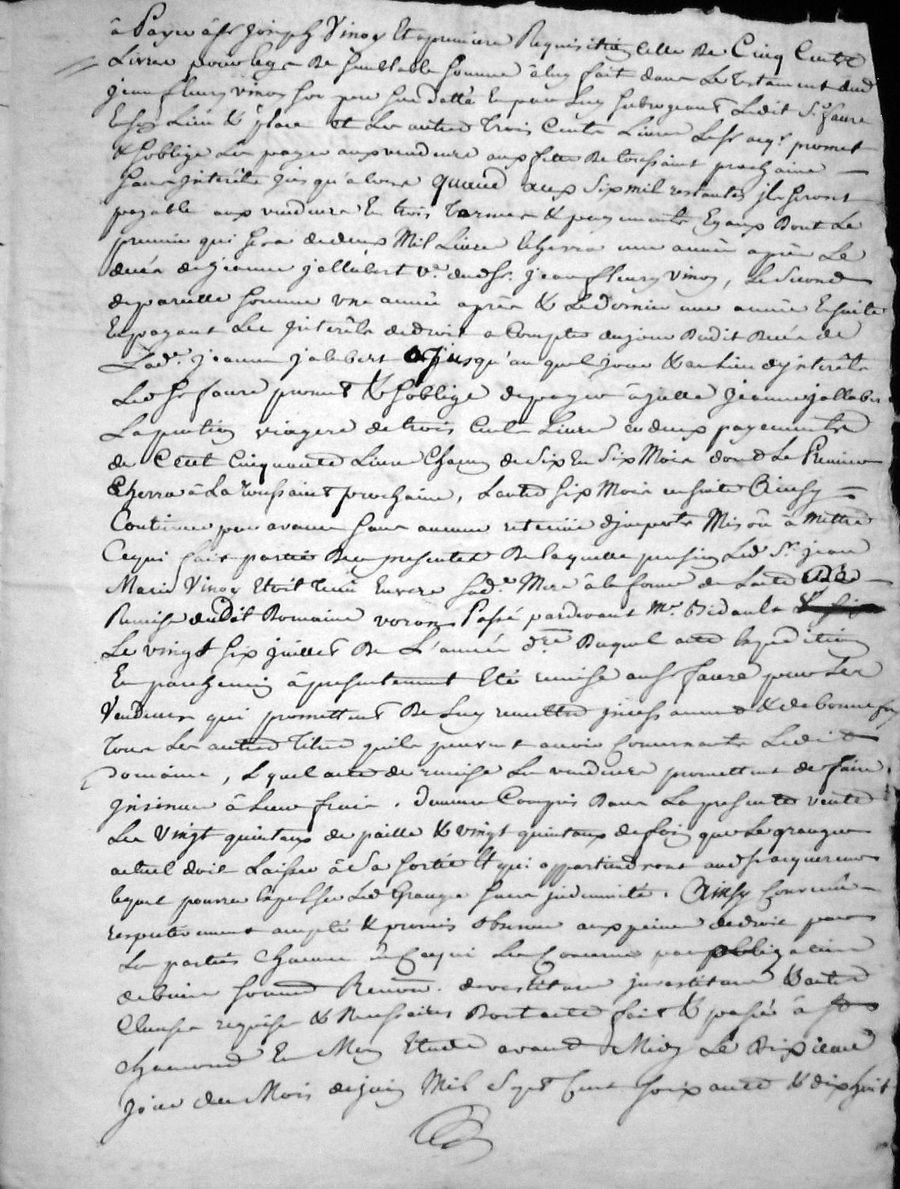 à Payer à Sr Joseph Vinoy et a première Requisition celle De Cinq Cents
Livres pour legs De semblable somme à luy fait dans Le testament dud
jean fleury vinoy son pere susdatté En par luy subrogeant Ledit Sr faure
En son Lieu & place et Les autres Trois Cents Livres Led Sr acqr promet
& s'oblige Les payer aux vendeurs aux fette De toussaint prochaine
sans interêts jusqu'alors quand aux six mil restantes ils seront
payable aux vendeurs En trois termes & payements Egaux Dont Le
premier qui sera de deux Mil Livres Echerra une année après Le
decés de jeanne jallabert ve dud Sr jean fleury vinoy, Le second
de pareille somme une année après & Le dernier une année Ensuite
En payant Les interêts de droit a Compter du jour Dudit Decés de
Lade jeanne jalabert jusqu'au quel jour & au Lieu d'interêts
Led Sr faure promet & s'oblige de payer à jeanne jallabert
La pention viagere de trois Cents Livres en deux payements
de Cent Cinquante Livres Chacun de six En six Mois dont Le Premier
Echerra à La toussaint prochaine, Lautre six Mois ensuite Ainsy
Continuer par avance sans aucune retenüe d'imposts Mis où à Mettre
Cequi fait partie Des presentes De laquelle pension Led Sr jean
Marie Vinoy Etoit Tenu Envers sade Mere à la forme de Lacte De
Remise dudit Domaine voron Passé pardevant Me Bidault
Le vingt six juillet De L'année dre Duquel acte Expedition
En parchemin à presentement Eté remise aud Sr faure pour Les
Vendeurs qui promettent De Luy remettre incessament & de bonne foy
Tous Les autres Titres qu'ils peuvent avoir Concernants Ledit
Domaine, Lequel acte de remise Les vendeurs promettent de faire
insinuer à Leurs frais. demeure Compris Dans La presente vente
Les vingt quintaux de paille & vingt quintaux de foin que Le granger
actuel doit Laisser à Sa sortie Et qui appartiendront aud Sr acquereur
lequel pourra Expulser Led Granger sans indemnité. Ainsy Convenu
respectivement accepté & promis observer aux peines de droit par
Les parties chacune à Cequi Les Concerne par obligation
de biens soumd Renon. devestiture investiture & autres
Clauses requises & Necessaires Dont acte fait & passé à St
Chamond En Mon Etude avant Midy Le Dixieme
jour du Mois de juin Mil Sept Cent soixante & dix huit